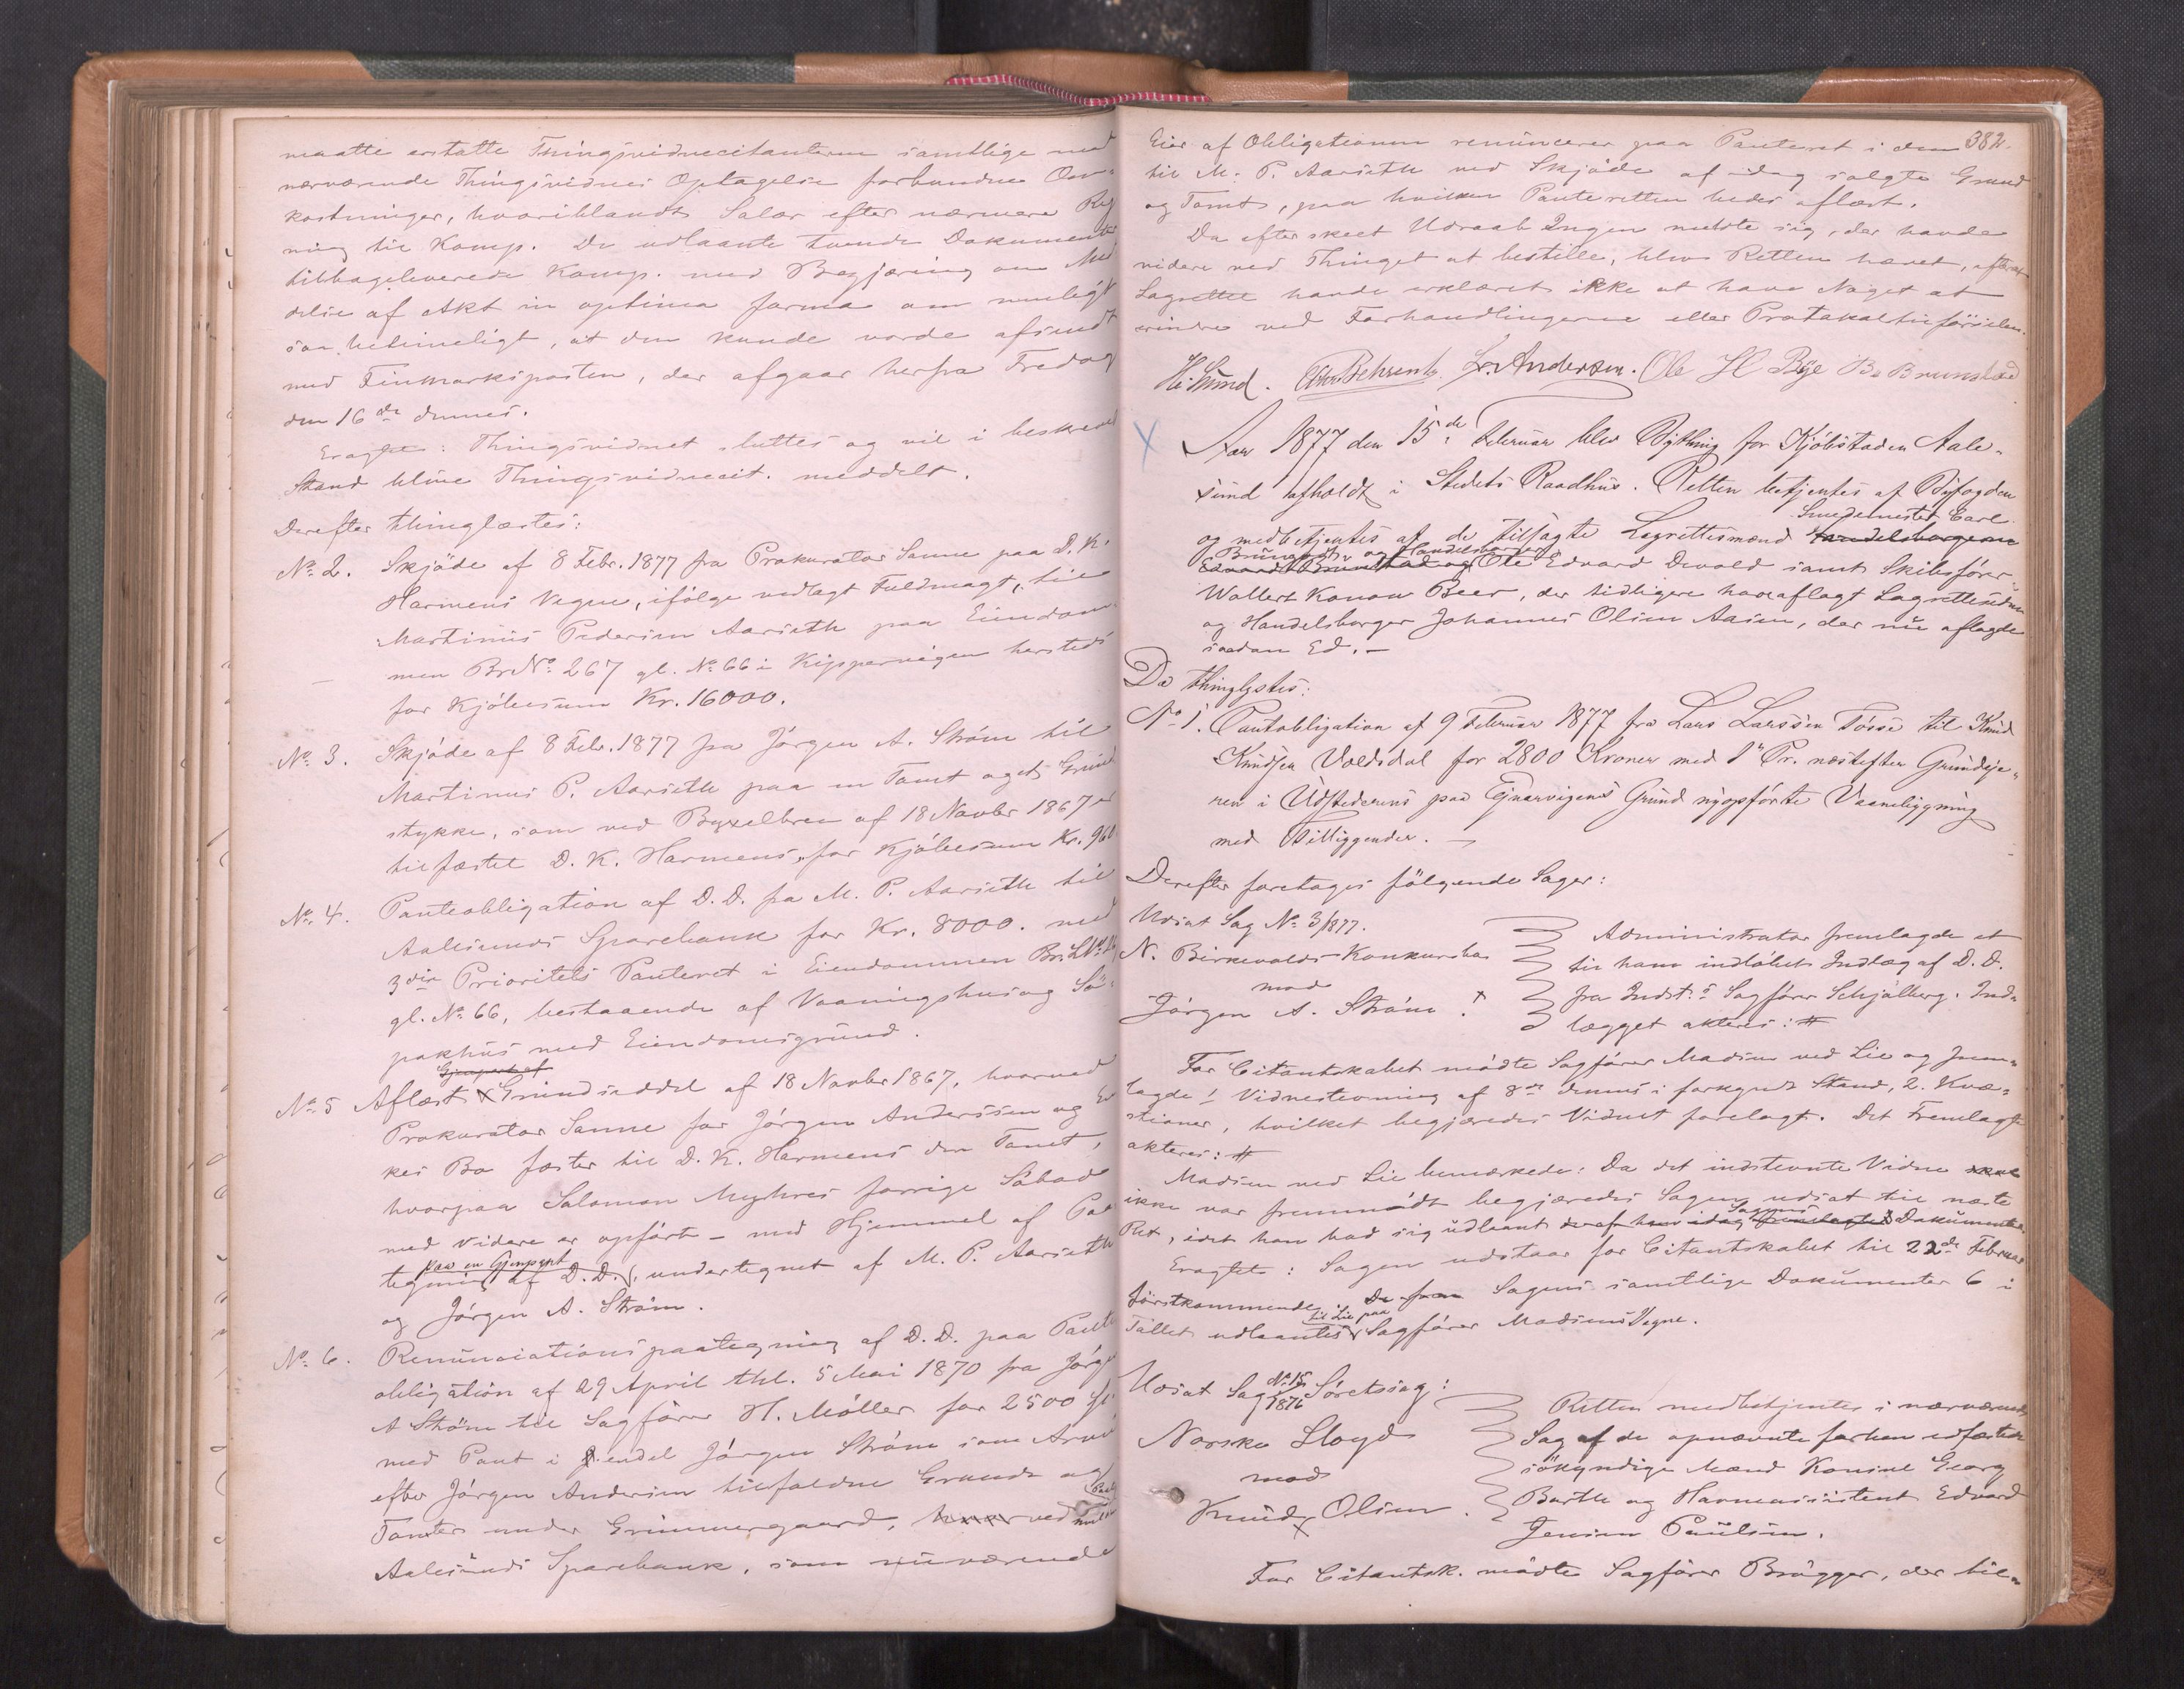 maatte erstatte Thingsvidnecitanterne samtlige med
nærværende Thingsvidnes Optagelse forbundne Om-
kostninger, hvoriblandt Salær efter nærmere Reg
ning til Komp. De udlaante tvende Dokumenter
tilbageleverede Komp. med Begjæring om Med
delse af Akt in optima forma om muligt
saa betimeligt, at den kunde vorde afsendt
med Finmarksposten, der afgaar herfra Fredag
den 16de dennes.
Eragtet: Thingsvidnet sluttes og vil i beskreven
Stand blive Thingsvidnecit. meddelt.
Derefter thinglæstes:
No. 2. Skjöde af 8 Febr. 1877 fra Prokurator Sanne paa D. K.
Harmens Vegne, ifølge vedlagt Fuldmagt, til
Martinus Pedersen Aarseth paa Eiendom-
men Br No. 267 gl. No. 66 i Kippervigen hersteds
for Kjöbesum Kr. 16000.
No. 3. Skjöde af 8 Febr. 1877 fra Jörgen A. Ström til
Martinus P. Aarseth paa en Tomt og et Grund
stykke, som ved Byxelbrev af 18 Novbr 1867 er
tilfæstet D. K. Harmens, for Kjöbesum Kr. 960.
No. 4. Panteobligation af D. D. fra M. P. Aarseth til
Aalesunds Sparebank for Kr. 8000. med
3die Prioritets Panteret i Eiendommen Br. L No.
gl. No. 66, bestaaende af Vaaningshus og Sö-
pakhus med Eiendomsgrund.
Gjenpart af
No. 5 Aflæst Grundseddel af 18 Novbr 1867, hvorved
Prokurator Sanne for Jörgen Anderssen og En
kes Bo fæster til D. K. Harmens den Tomt,
hvorpaa Salomon Myhres forrige Söbod
med Videre er opfört – med Hjemmel af Paa
paa en Gjenpart
tegning af D. D., undertegnet af M. P. Aarseth
og Jörgen A. Ström.
No. 6. Renunciationspaategning af D. D. paa Pante
obligation af 29 April thl. 5 Mai 1870 fra Jörgen
A Ström til Sagförer H. Möller for 2500 Sp
med Pant i endel Jörgen Ström som Arv
efter Jörgen Andersen tilfaldne Grunde og
Tomter under Grimmergaard, ved
Aalesunds Sparebank, som nuværende
382.
Eier af Obligationen renuncerer paa Panteret i den
til M. P. Aarseth ved Skjöde af idag solgte Grund
og Tomt, paa hvilken Panteretten bedes aflæst.
Da efter skeet Udraab Ingen meldte sig, der havde
videre ved Thinget at bestille, blev Retten hævet, efterat
Lagrettet havde erklæret ikke at have Noget at
erindre ved Forhandlingerne eller Protokoltilförselen.
Hr. Lund. Chr Behrents. L. Andersen. Ole H Bye B. Brunstad
X Aar 1877 den 15de Februar blev Bything for Kjöbstaden Aale-
sund afholdt i Stedets Raadhus. Retten betjentes af Byfogden
Smedemester Carl
og medbetjentes af de tilsagte Lagrettesmænd Handelsborgerne
og Handelsborger
Edvardt Brunstad og Ole Edvard Devold samt Skibsförer
Wollert Konow Beer, der tidligere have aflagt Lagretteseden
og Handelsborger Johannes Olsen Aasen, der nu aflagde
saadan Ed. –
Da thinglystes:
No. 1. Pantobligation af 9 Februar 1877 fra Lars Larssen Tösse til Knud
Knudsen Voldsdal for 2800 Kroner med 1ste Pr. næstefter Grundeje-
ren i Udstederens paa Qvarvigens Grund nyopförte Vaanbygning
med Tilliggender. –
Derefter foretages fölgende Sager:
Udsat Sag No. 3/1877.
N. Birkevolds Konkursbo
mod
Jörgen A. Ström.
Administrator fremlagde et
til ham indlöbet Indlæg af D. D.
fra Indst.s Sagförer Schjölberg. Ind-
lægget akteres: #
For Citantskabet mödte Sagförer Madsen ved Lie og frem-
lagde 1 Vidnestevning af 8de dennes i forkyndt Stand, 2. Kvæ-
stioner, hvilket begjæredes Vidnet forelagt. Det Fremlagte
akteres: #
Madsen ved Lie bemærkede: Da det indstevnte Vidne
ikke var fremmödt begjæredes Sagen udsat til næste
Sagens
Ret, idet han bad sig udlaant de af ham idag fremlagte Dokumenter
Eragtet: Sagen udstaar for Citantskabet til 22de Februar
förstkommende. Sagens samtlige Dokumenter 6 i
til Lie paa
Tallet udlaantes Sagförer Madsens Vegne.
Udsat Sag No. 15/1876 Söretssag:
Norske Lloyd
mod
Knud Olsen.
Retten medbetjentes i nærværende
Sag af de opnævnte forhen edfæstede
sökyndige Mænd Konsul Georg
Barth og Havneassistent Edvard
Jensen Paulsen.
For Citantsk. mödte Sagförer Brögger, der til-